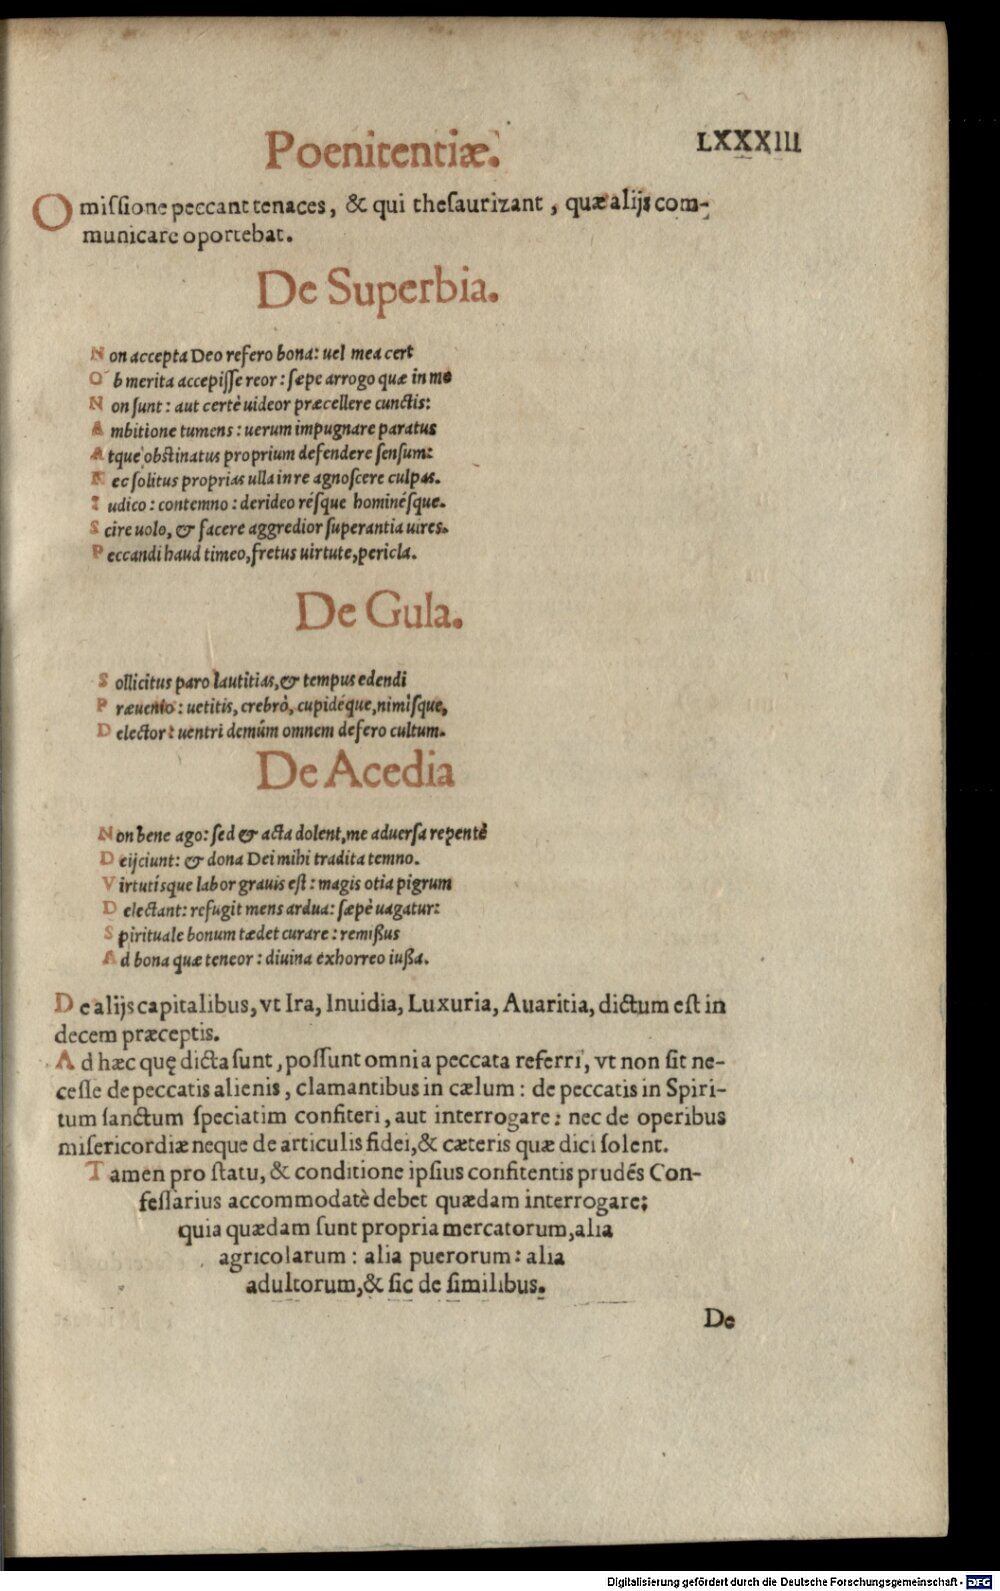 Poenitentiæ.
LXXXIII
Omissione peccant tenaces, & qui thesaurizant, quæ alijs com-
municare oportebat.
De Superbia.
Non accepta Deo refero bona: uel mea cert
Ob merita accepisse reor: sæpe arrogo quæ in me
Non sunt: aut certè uideor præcellere cunctis:
Ambitione tumens: uerum impugnare paratus
Atque obstinatus proprium defendere sensum:
Nec solitus proprias ulla in re agnoscere culpas.
Iudico: contemno: derideo résque hominésque.
Scire uolo, & facere aggredior superantia uires.
Peccandi haud timeo, fretus uirtute, pericla.
De Gula.
Sollicitus paro lautitias, & tempus edendi
Præuenio: uetitis, crebrò, cupidéque, nimìsque,
Delector: uentri demúm omnem defero cultum.
De Acedia
Non bene ago: sed & acta dolent, me aduersa repentè
Deijciunt: & dona Dei mihi tradita temno.
Virtutísque labor grauis est: magis otia pigrum
Delectant: refugit mens ardua: sæpè uagatur:
Spirituale bonum tædet curare: remißus
Ad bona quæ teneor: diuina exhorreo iußa.
De alijs capitalibus, vt Ira, Inuidia, Luxuria, Auaritia, dictum est in
decem præceptis.
Ad hæc quę dicta sunt, possunt omnia peccata referri, vt non sit ne-
cesse de peccatis alienis, clamantibus in cælum: de peccatis in Spiri-
tum sanctum speciatim confiteri, aut interrogare: nec de operibus
misericordiæ neque de articulis fidei, & cæteris quæ dici solent.
Tamen pro statu, & conditione ipsius confitentis prudēs Con-
fessarius accommodatè debet quædam interrogare:
quia quædam sunt propria mercatorum, alia
agricolarum: alia puerorum: alia
adultorum, & sic de similibus.
De
Digitalisierung gefördert durch die Deutsche Forschungsgemeinschaft - DFG